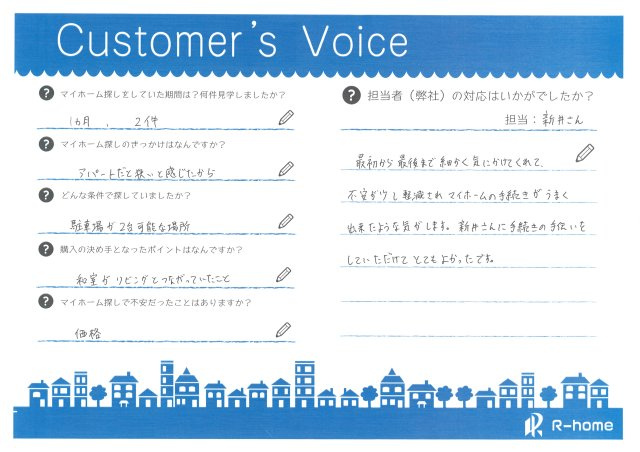 Customer's Voice
? マイホーム探しをしていた期間は？何件見学しましたか？
1ヵ月 、 2件
? マイホーム探しのきっかけはなんですか？
アパートだと狭いと感じたから
? どんな条件で探していましたか？
駐車場が2台可能な場所
? 購入の決め手となったポイントはなんですか？
和室がリビングとつながっていたこと
? マイホーム探しで不安だったことはありますか？
価格
? 担当者（弊社）の対応はいかがでしたか？
担当：新井さん
最初から最後まで細かく気にかけてくれて、
不安が少し軽減され マイホームの手続きがうまく
出来たような気がします。新井さんに手続きの手伝いを
していただけて とてもよかったです。
R-home